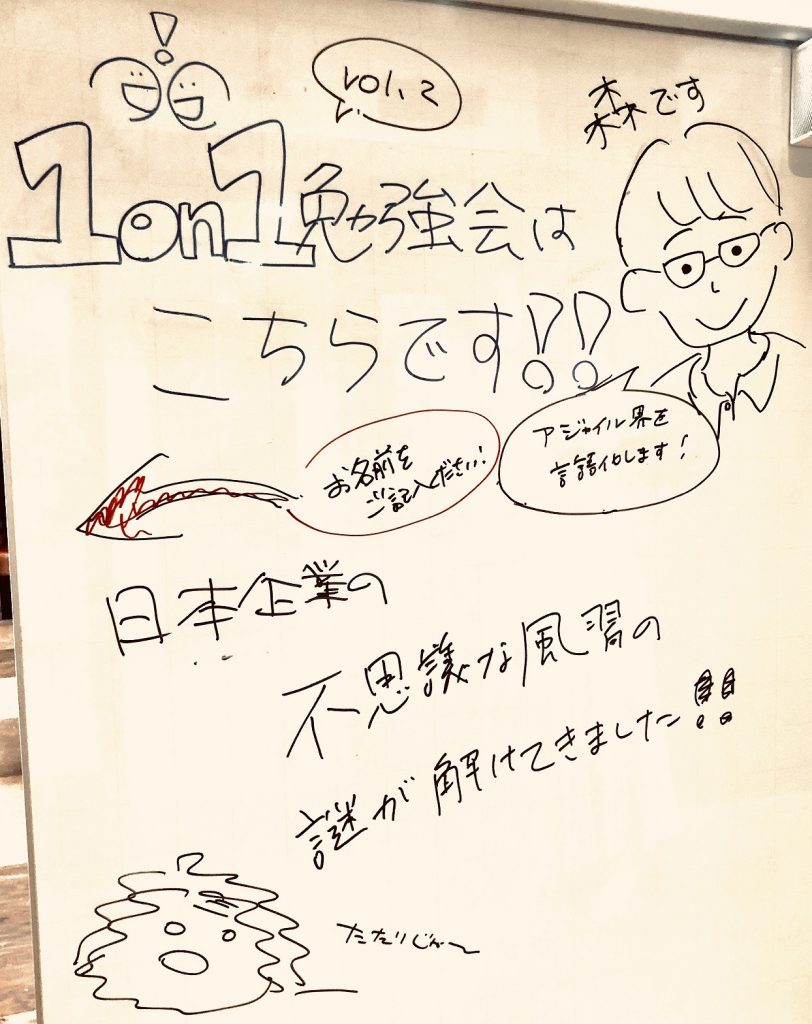 vol. 2
森です
1on1勉強会は
こちらです!!
アジャイル界を
言語化します!
お名前を
ご記入ください!
日本企業の
不思議な風習の
謎が解けてきました!!
たたりじゃ〜